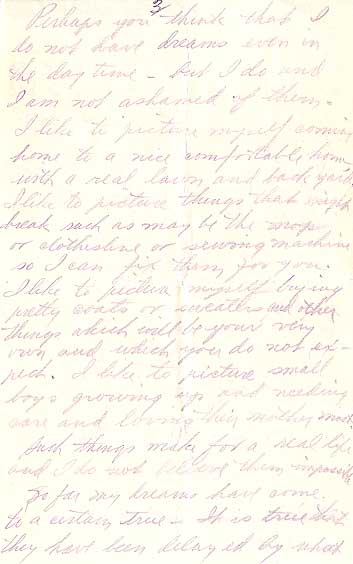 3/
Perhaps you think that I
do not have dreams even in
the day time - but I do and
I am not ashamed of them.
I like to picture myself coming
home to a nice comfortable home
with a real lawn and back yard
I like to picture things that might
break such as may be the mop
or clothesline or sewing machine
so I can fix them for you.
I like to picture myself buying
pretty coats or sweaters and other
things which will be your very
own and which you do not ex-
pect. I like to picture small
boys growing up and needing
care and loving their mother most.
Such things make for a real life
and I do not believe them impossible
So far my dreams have come
to a certain true - It is true that
they have been delayed by what